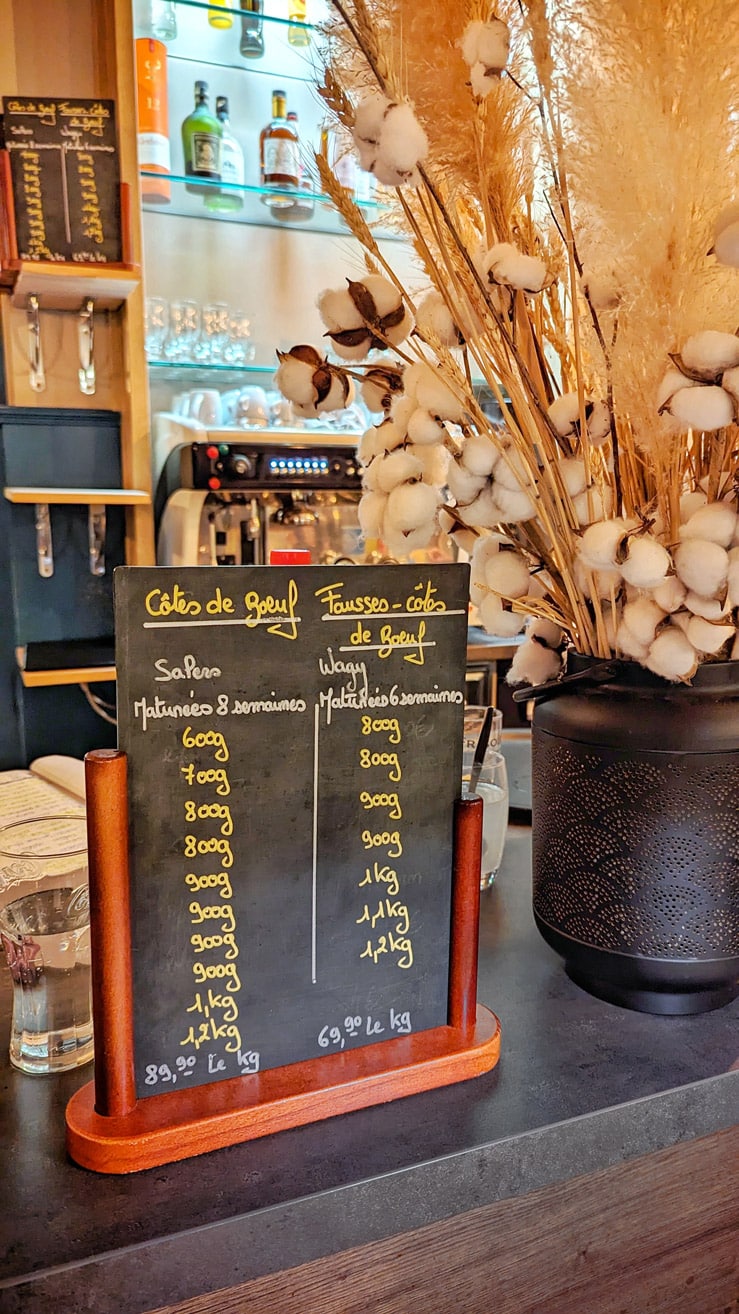 Côtes de Boeuf
Salers
Maturées 8 semaines
600g
700g
800g
800g
900g
900g
900g
900g
1kg
1,2kg
89,90 Le kg
Fausses-côtes
de Boeuf
Wagy
Maturées 6 semaines
800g
800g
900g
900g
1kg
1,1kg
1,2kg
69,90 Le kg
Côtes de Boeuf
Salers
Fausses-côtes
de Boeuf
Wagy